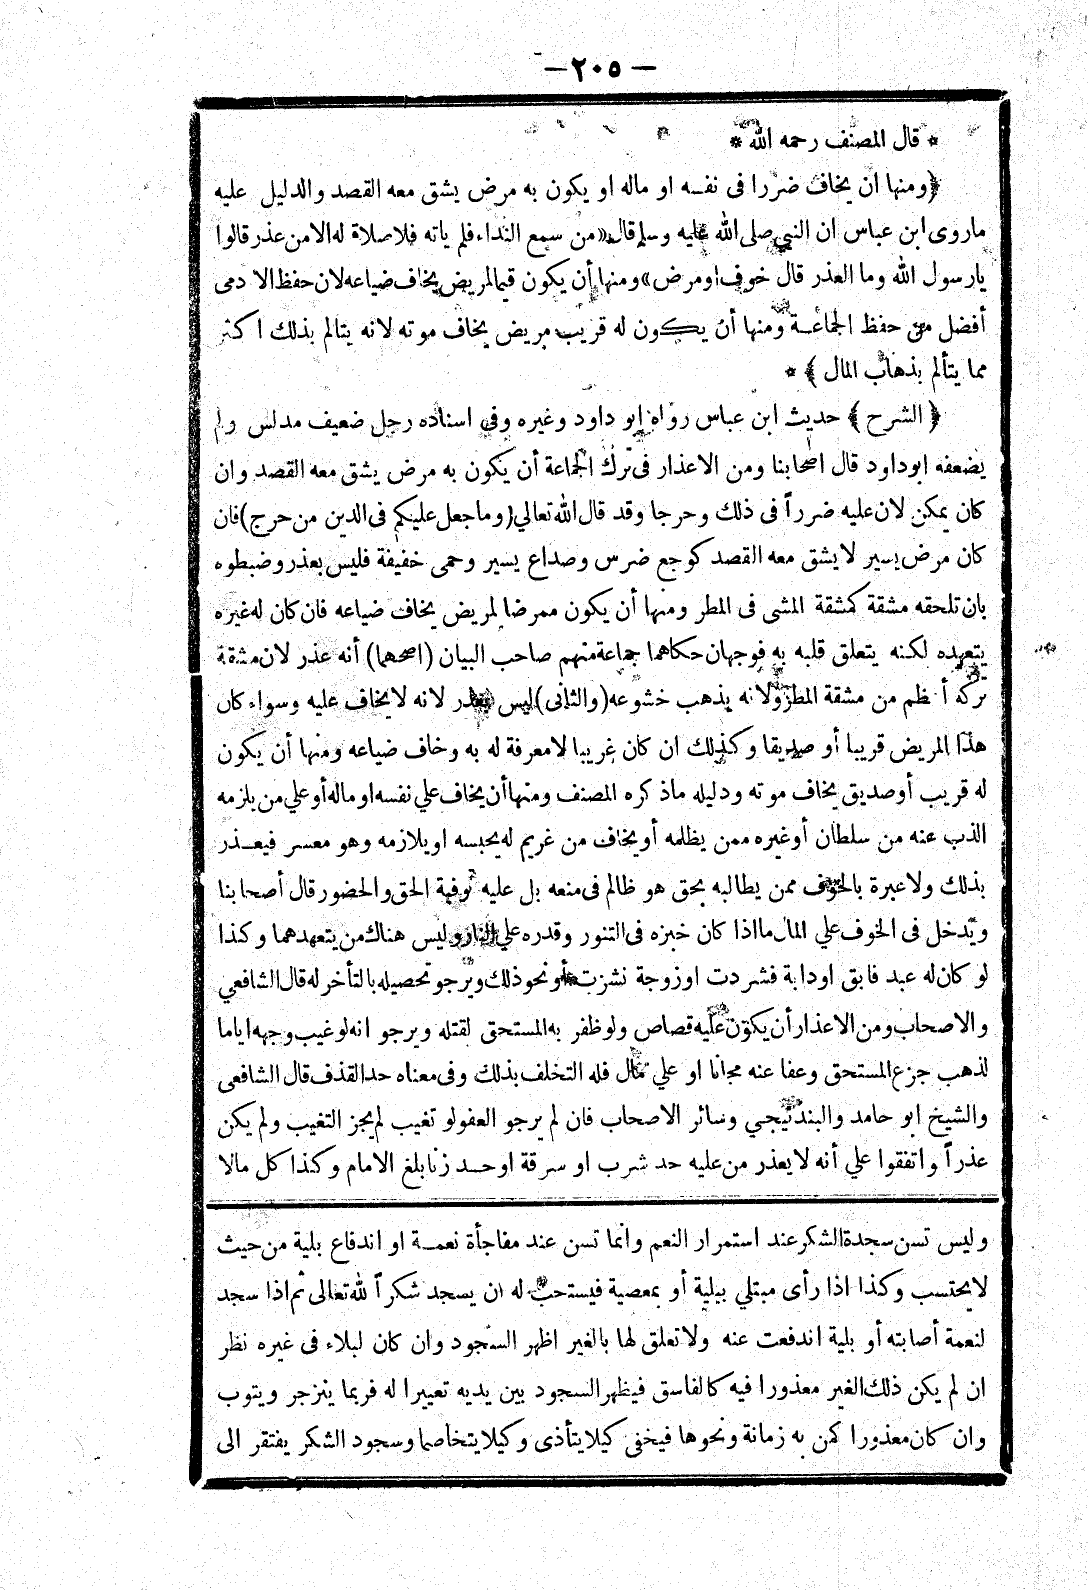 — ٢٠٥ —
* قال المصنف رحمه الله *
﴿ومنها ان يخاف ضررا فى نفسه او ماله او يكون به مرض يشق معه القصد والدليل عليه
ماروى ابن عباس ان النبي صلى الله عليه وسلم قال «من سمع النداء فلم ياته فلاصلاة له الامن عذر قالوا
يارسول الله وما العذر قال خوف او مرض» ومنها أن يكون قيما لمريض يخاف ضياعه لان حفظ الادمى
أفضل من حفظ الجماعة ومنها أن يكون له قريب مريض يخاف موته لانه يتالم بذلك اكثر
مما يتألم بذهاب المال﴾ *
﴿الشرح﴾ حديث ابن عباس رواه ابو داود وغيره وفى اسناده رجل ضعيف مدلس ولم
يضعفه ابوداود قال اصحابنا ومن الاعذار فى ترك الجماعة أن يكون به مرض يشق معه القصد وان
كان يمكن لان عليه ضرراً فى ذلك وحرجا وقد قال الله تعالي (وما جعل عليكم فى الدين من حرج) فان
كان مرض يسير لا يشق معه القصد كوجع ضرس وصداع يسير وحمى خفيفة فليس بعذر وضبطوه
بان تلحقه مشقة كمشقة المشى فى المطر ومنها أن يكون ممرضا لمريض يخاف ضياعه فان كان له غيره
يتعهده لكنه يتعلق قلبه به فوجهان حكاهما جماعة منهم صاحب البيان (اصحهما) أنه عذر لان مشقة
تركه أعظم من مشقة المطر ولانه يذهب خشوعه (والثانى) ليس بعذر لانه لايخاف عليه وسواء كان
هذا المريض قريبا أو صديقا وكذلك ان كان غريبا لامعرفة له به وخاف ضياعه ومنها أن يكون
له قريب أوصديق يخاف موته ودليله ماذكره المصنف ومنها أن يخاف علي نفسه او ماله أو علي من يلزمه
الذب عنه من سلطان أوغيره ممن يظلمه أويخاف من غريم له يحبسه اويلازمه وهو معسر فيعذر
بذلك ولاعبرة بالخوف ممن يطالبه بحق هو ظالم فى منعه بل عليه توفية الحق والحضور قال أصحابنا
ويدخل فى الخوف علي المال مااذا كان خبزه فى التنور وقدره علي النار وليس هناك من يتعهدهما وكذا
لو كان له عبد فابق اودابة فشردت اوزوجة نشزت أو نحو ذلك ويرجو تحصيله بالتأخر له قال الشافعي
والاصحاب ومن الاعذار أن يكون عليه قصاص ولو ظفر به المستحق لقتله ويرجو انه لوغيب وجهه اياما
لذهب جزع المستحق وعفا عنه مجانا او علي مال فله التخلف بذلك وفى معناه حد القذف قال الشافعى
والشيخ ابو حامد والبندنيجي وسائر الاصحاب فان لم يرجو العفو لو تغيب لم يجز التغيب ولم يكن
عذراً واتفقوا علي أنه لايعذر من عليه حد شرب او سرقة اوحد زنا بلغ الامام وكذا كل مالا
وليس تسن سجدة الشكر عند استمرار النعم وانما تسن عند مفاجأة نعمة او اندفاع بلية من حيث
لايحتسب وكذا اذا رأى مبتلي ببلية أو بمعصية فيستحب له ان يسجد شكراً لله تعالى ثم اذا سجد
لنعمة أصابته أو بلية اندفعت عنه ولاتعلق لها بالغير اظهر السجود وان كان لبلاء فى غيره نظر
ان لم يكن ذلك الغير معذورا فيه كالفاسق فيظهر السجود بين يديه تعييرا له فربما ينزجر ويتوب
وان كان معذورا كمن به زمانة ونحوها فيخفى كيلا يتأذى وكيلا يتخاصما وسجود الشكر يفتقر الى